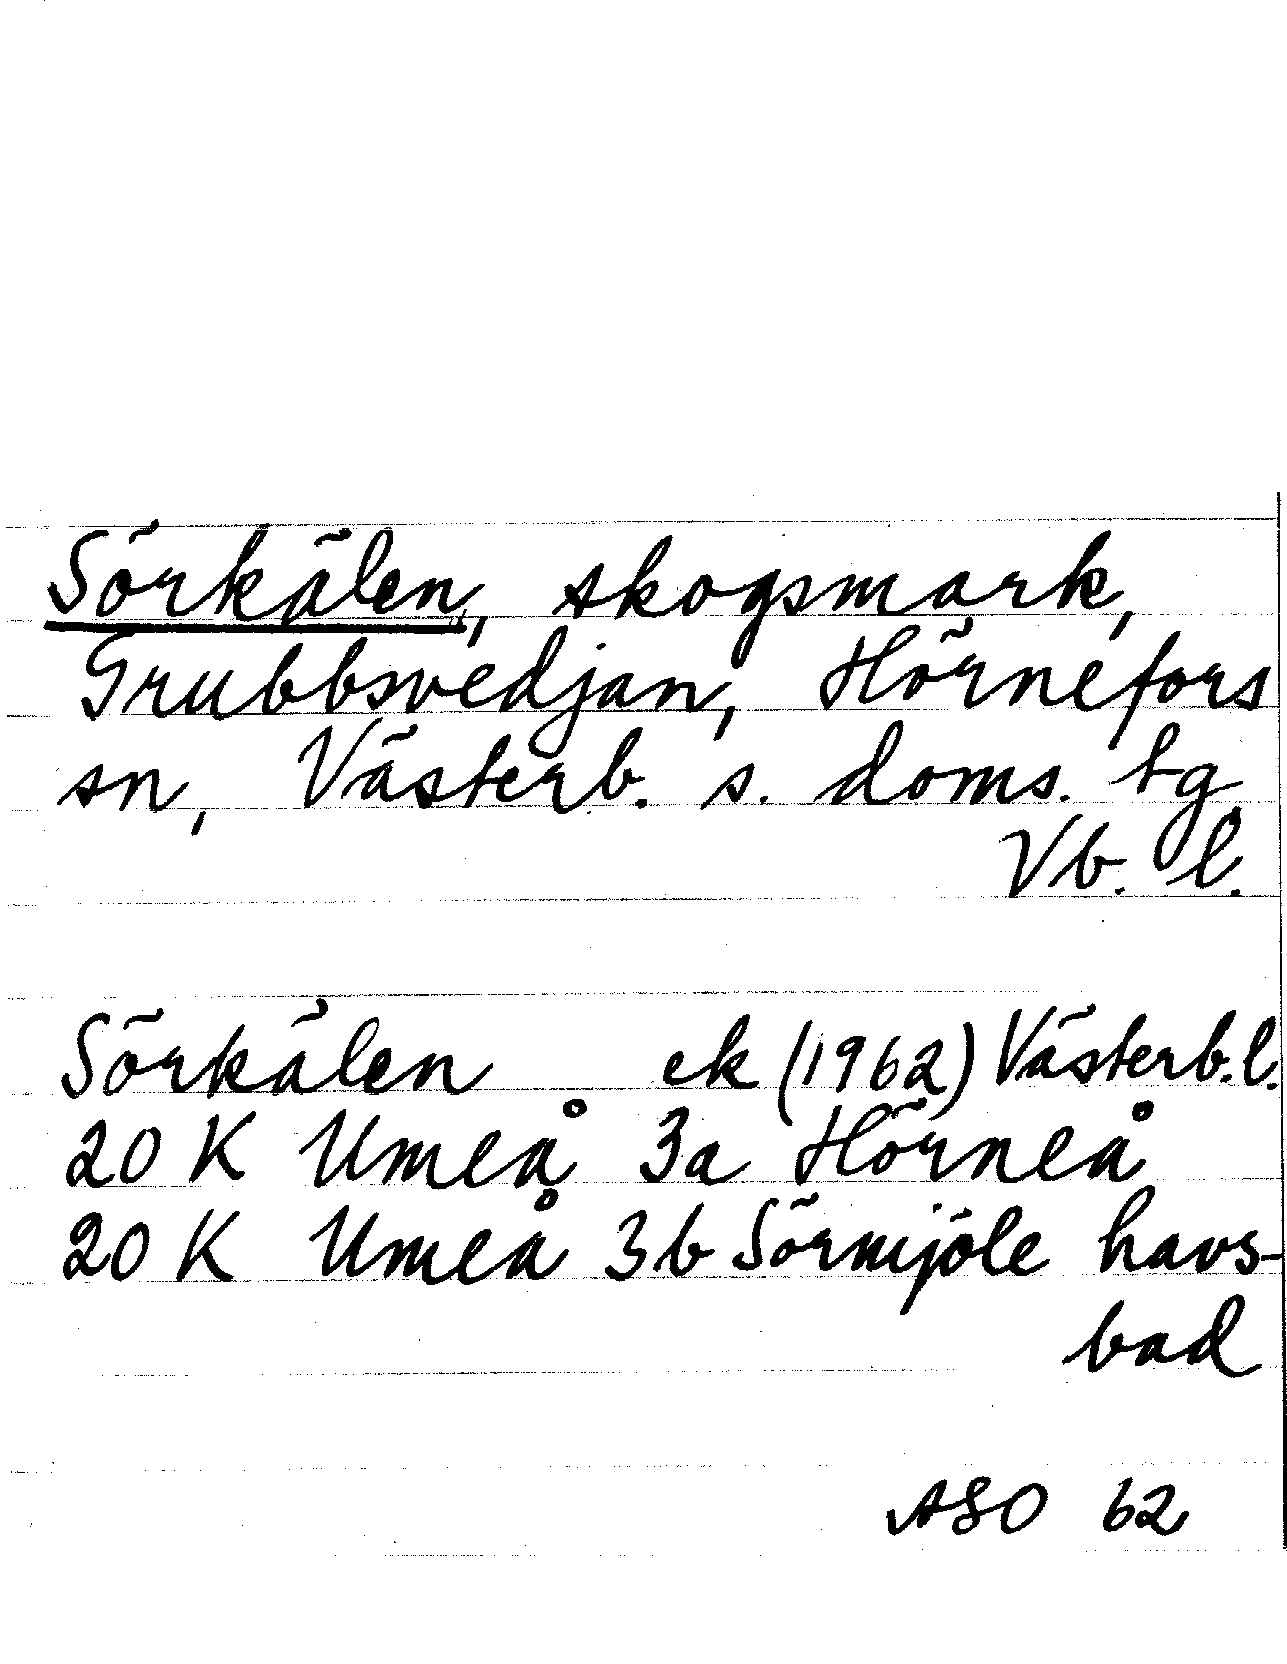 Sörkälen, skogsmark,
Grubbsvedjan, Hörnefors
sn, Västerb. s. doms. tg
Vb. l.
Sörkälen ek (1962) Västerb. l.
20 K Umeå 3a Hörneå
20 K Umeå 3b Sörmjöle havs-
bad
ASO 62